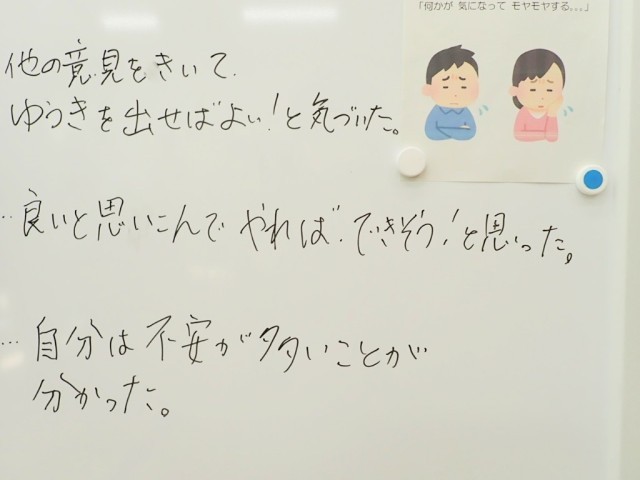 「何かが 気になって モヤモヤする。。。」
他の意見をきいて
ゆうきを出せばよい!と気づいた。
…良いと思いこんで やれば できそう!と思った。
…自分は不安が多いことが
分かった。